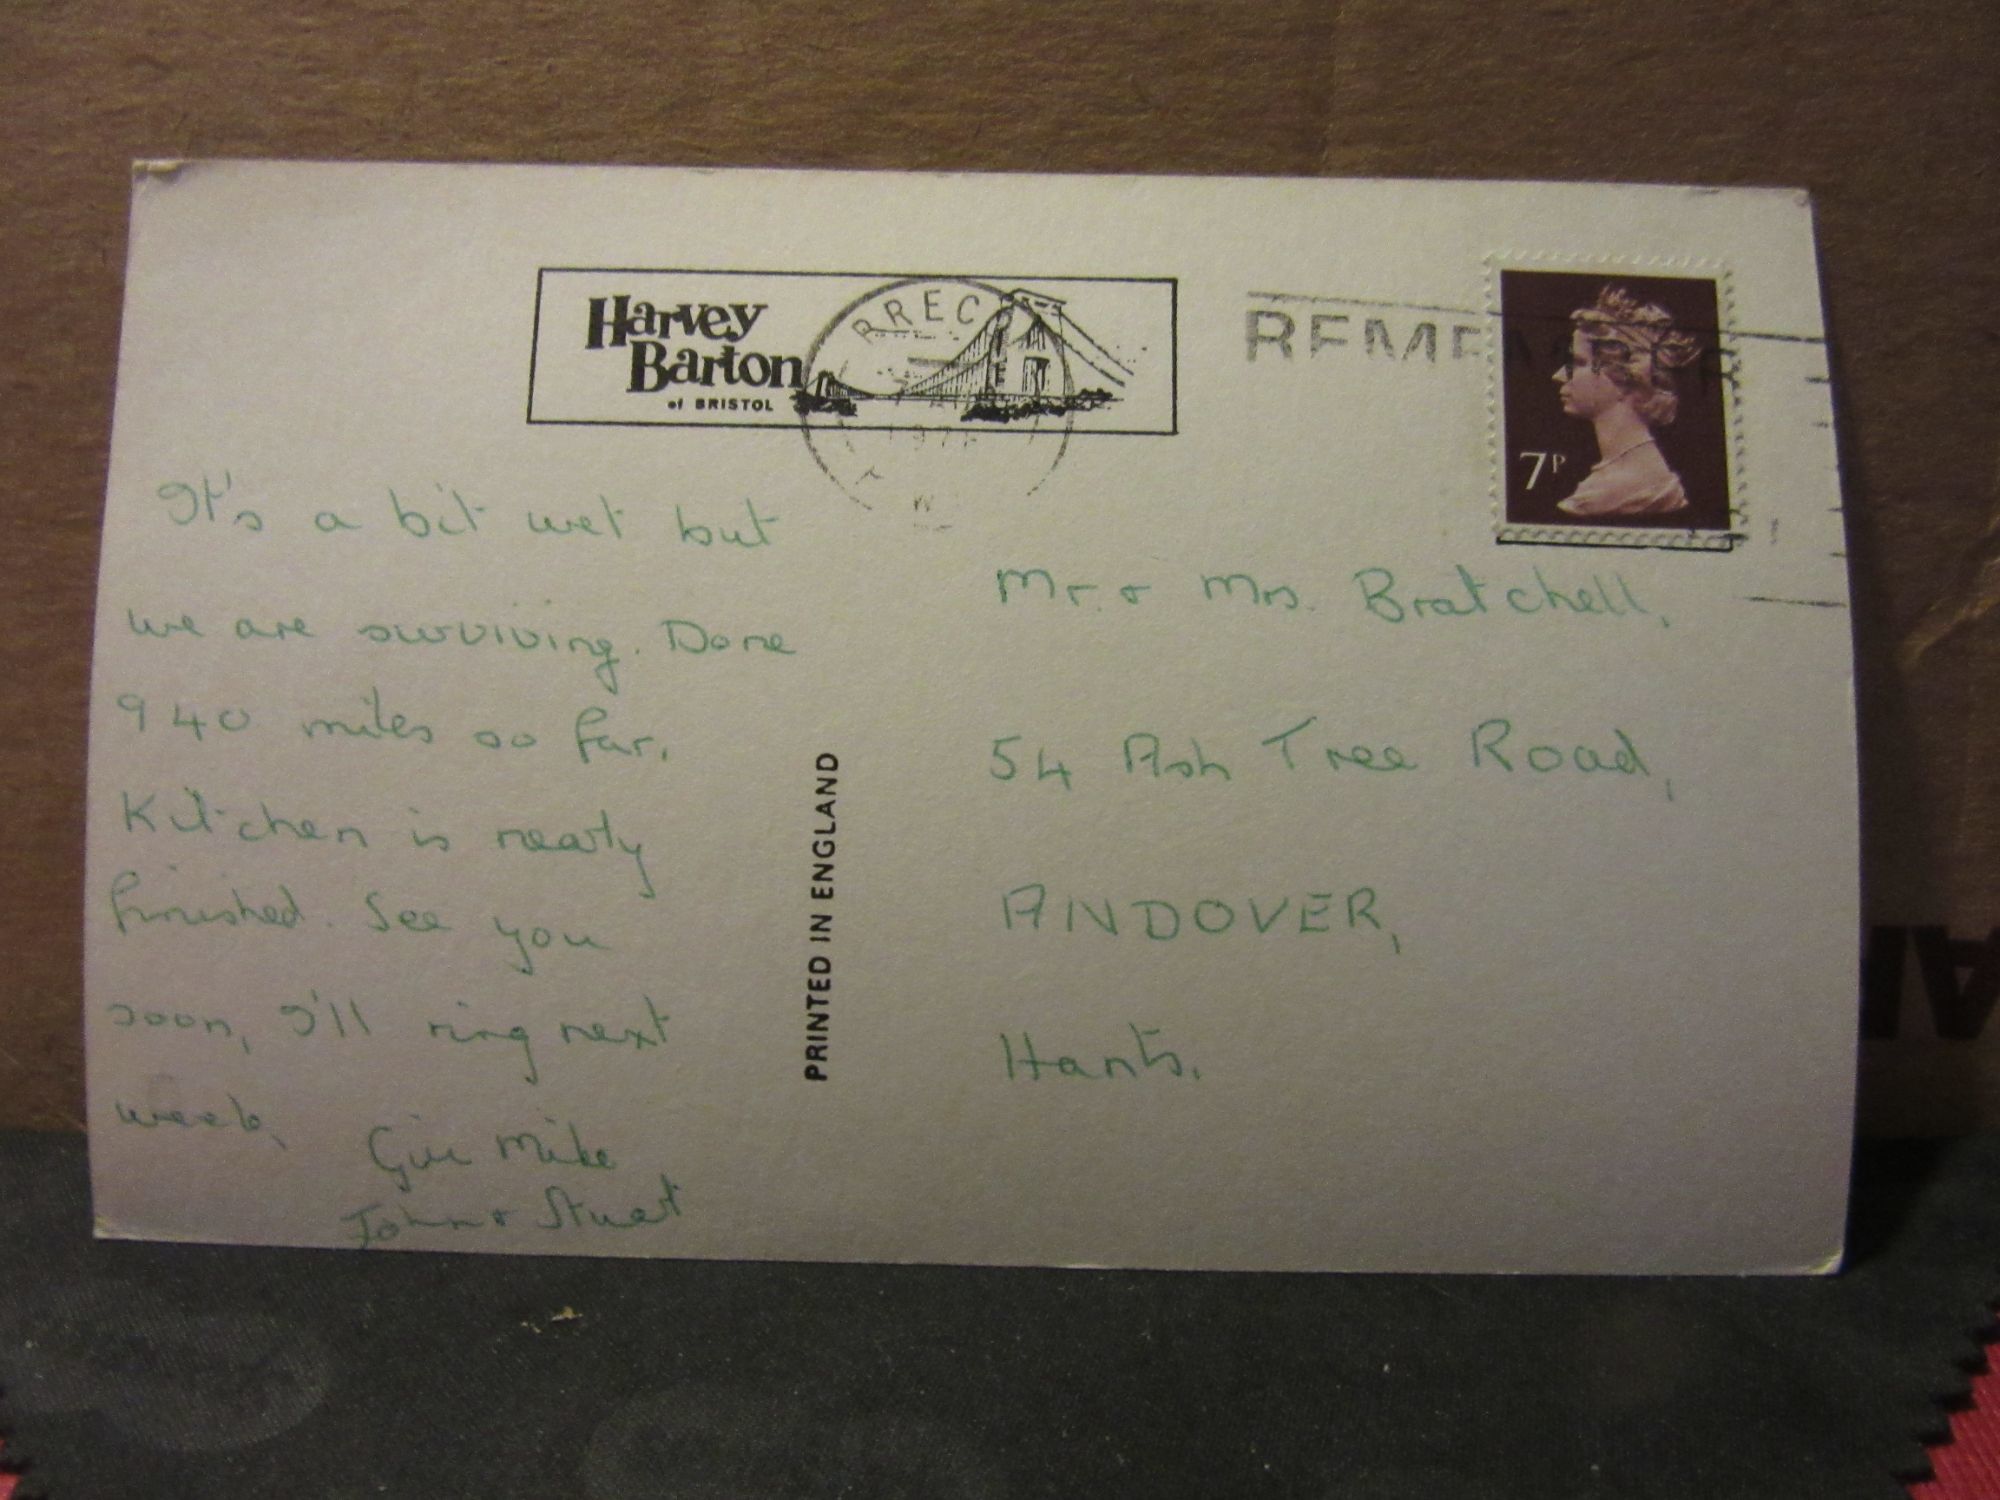 Harvey
Barton
of BRISTOL
BRECON
7 P
It's a bit wet but
we are surviving. Done
940 miles so far.
Kitchen is nearly
finished. See you
soon, I'll ring next
week.
Mike
John & Stuart
PRINTED IN ENGLAND
Mr. & Mrs. Bratchell,
54 Ash Tree Road,
ANDOVER,
Hants.